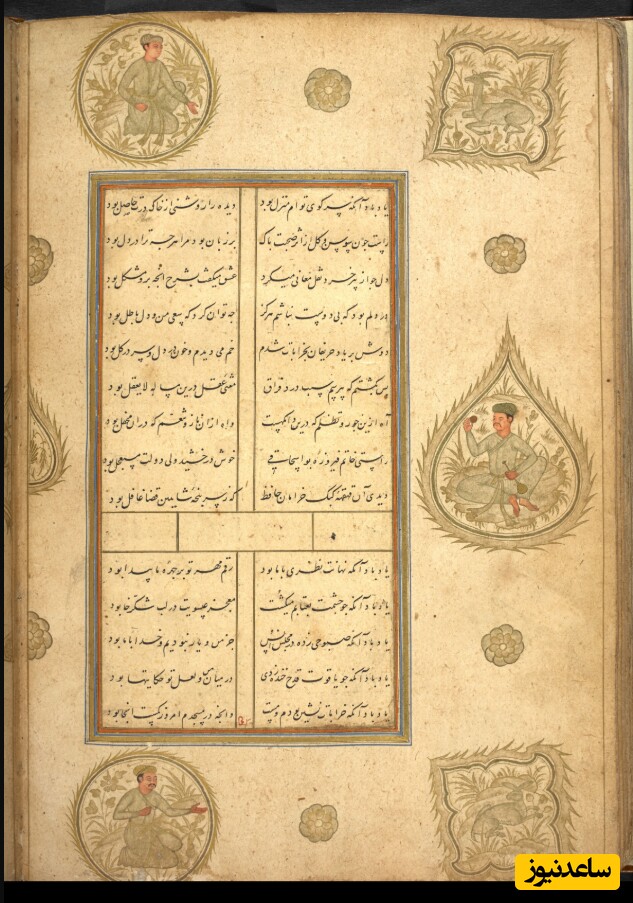 یاد باد آنکه سر کوی توام منزل بود دیده را روشنی از خاک درت حاصل بود
راست چون سوسن و گل از اثر صحبت پاک بر زبان بود مرا هر چه ترا در دل بود
دل چو از پیر خرد نقل معانی میکرد عشق میگفت بشرح آنچه برو مشکل بود
در دلم بود که بی دوست نباشم هرگز چه توان کرد که سعی من و دل باطل بود
دوش بر یاد حریفان بخرابات شدم خم می دیدم و خون در دل و سر در گل بود
بس بگشتم که بپرسم سبب درد فراق مفتی عقل درین مساله لایعقل بود
آه ازین جور و تظلم که درین دامگهست واه از آن ناز و تنعم که در آن محفل بود
راستی خاتم فیروزه بواسحاقی خوش درخشید ولی دولت مستعجل بود
دیدی آن قهقهه کبک خرامان حافظ که ز سر پنجه شاهین قضا غافل بود
یاد باد آنکه نهانت نظری با ما بود رقم مهر تو بر چهره ما پیدا بود
یاد باد آنکه چو چشمت بعتابم میکشت معجز عیسویت در لب شکر خا بود
یاد باد آنکه صبوحی زده در مجلس انس جز من و یار نبودیم و خدا با ما بود
یاد باد آنکه چو یاقوت قدح خنده زدی در میان من و لعل تو حکایتها بود
یاد باد آنکه خرابات نشین بودم و مست وانچه در مسجدم امروز کمست آنجا بود
ساعدنیوز